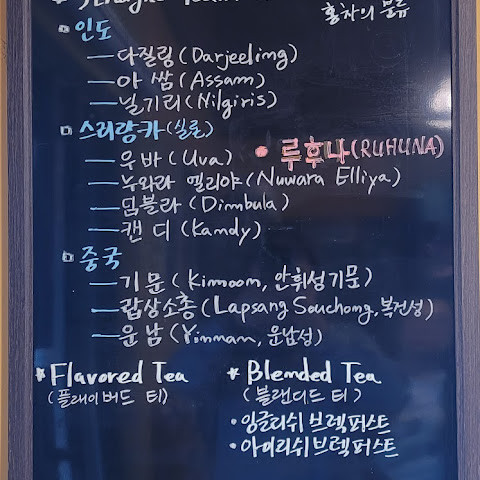 홍차의 분류
인도
— 다질링 (Darjeeling)
— 아쌈 (Assam)
— 닐기리 (Nilgiris)
스리랑카 (실론)
— 우바 (Uva) • 루후나 (RUHUNA)
— 누와라 엘리야 (Nuwara Elliya)
— 딤블라 (Dimbula)
— 캔디 (Kandy)
중국
— 기문 (Kimoon, 안휘성 기문)
— 랍상소총 (Lapsang Souchong, 복건성)
— 운남 (Yinnan, 운남성)
* Flavored Tea * Blended Tea
(플레이버드 티) (블랜디드 티)
• 잉글리쉬 브렉퍼스트
• 아이리쉬 브렉퍼스트